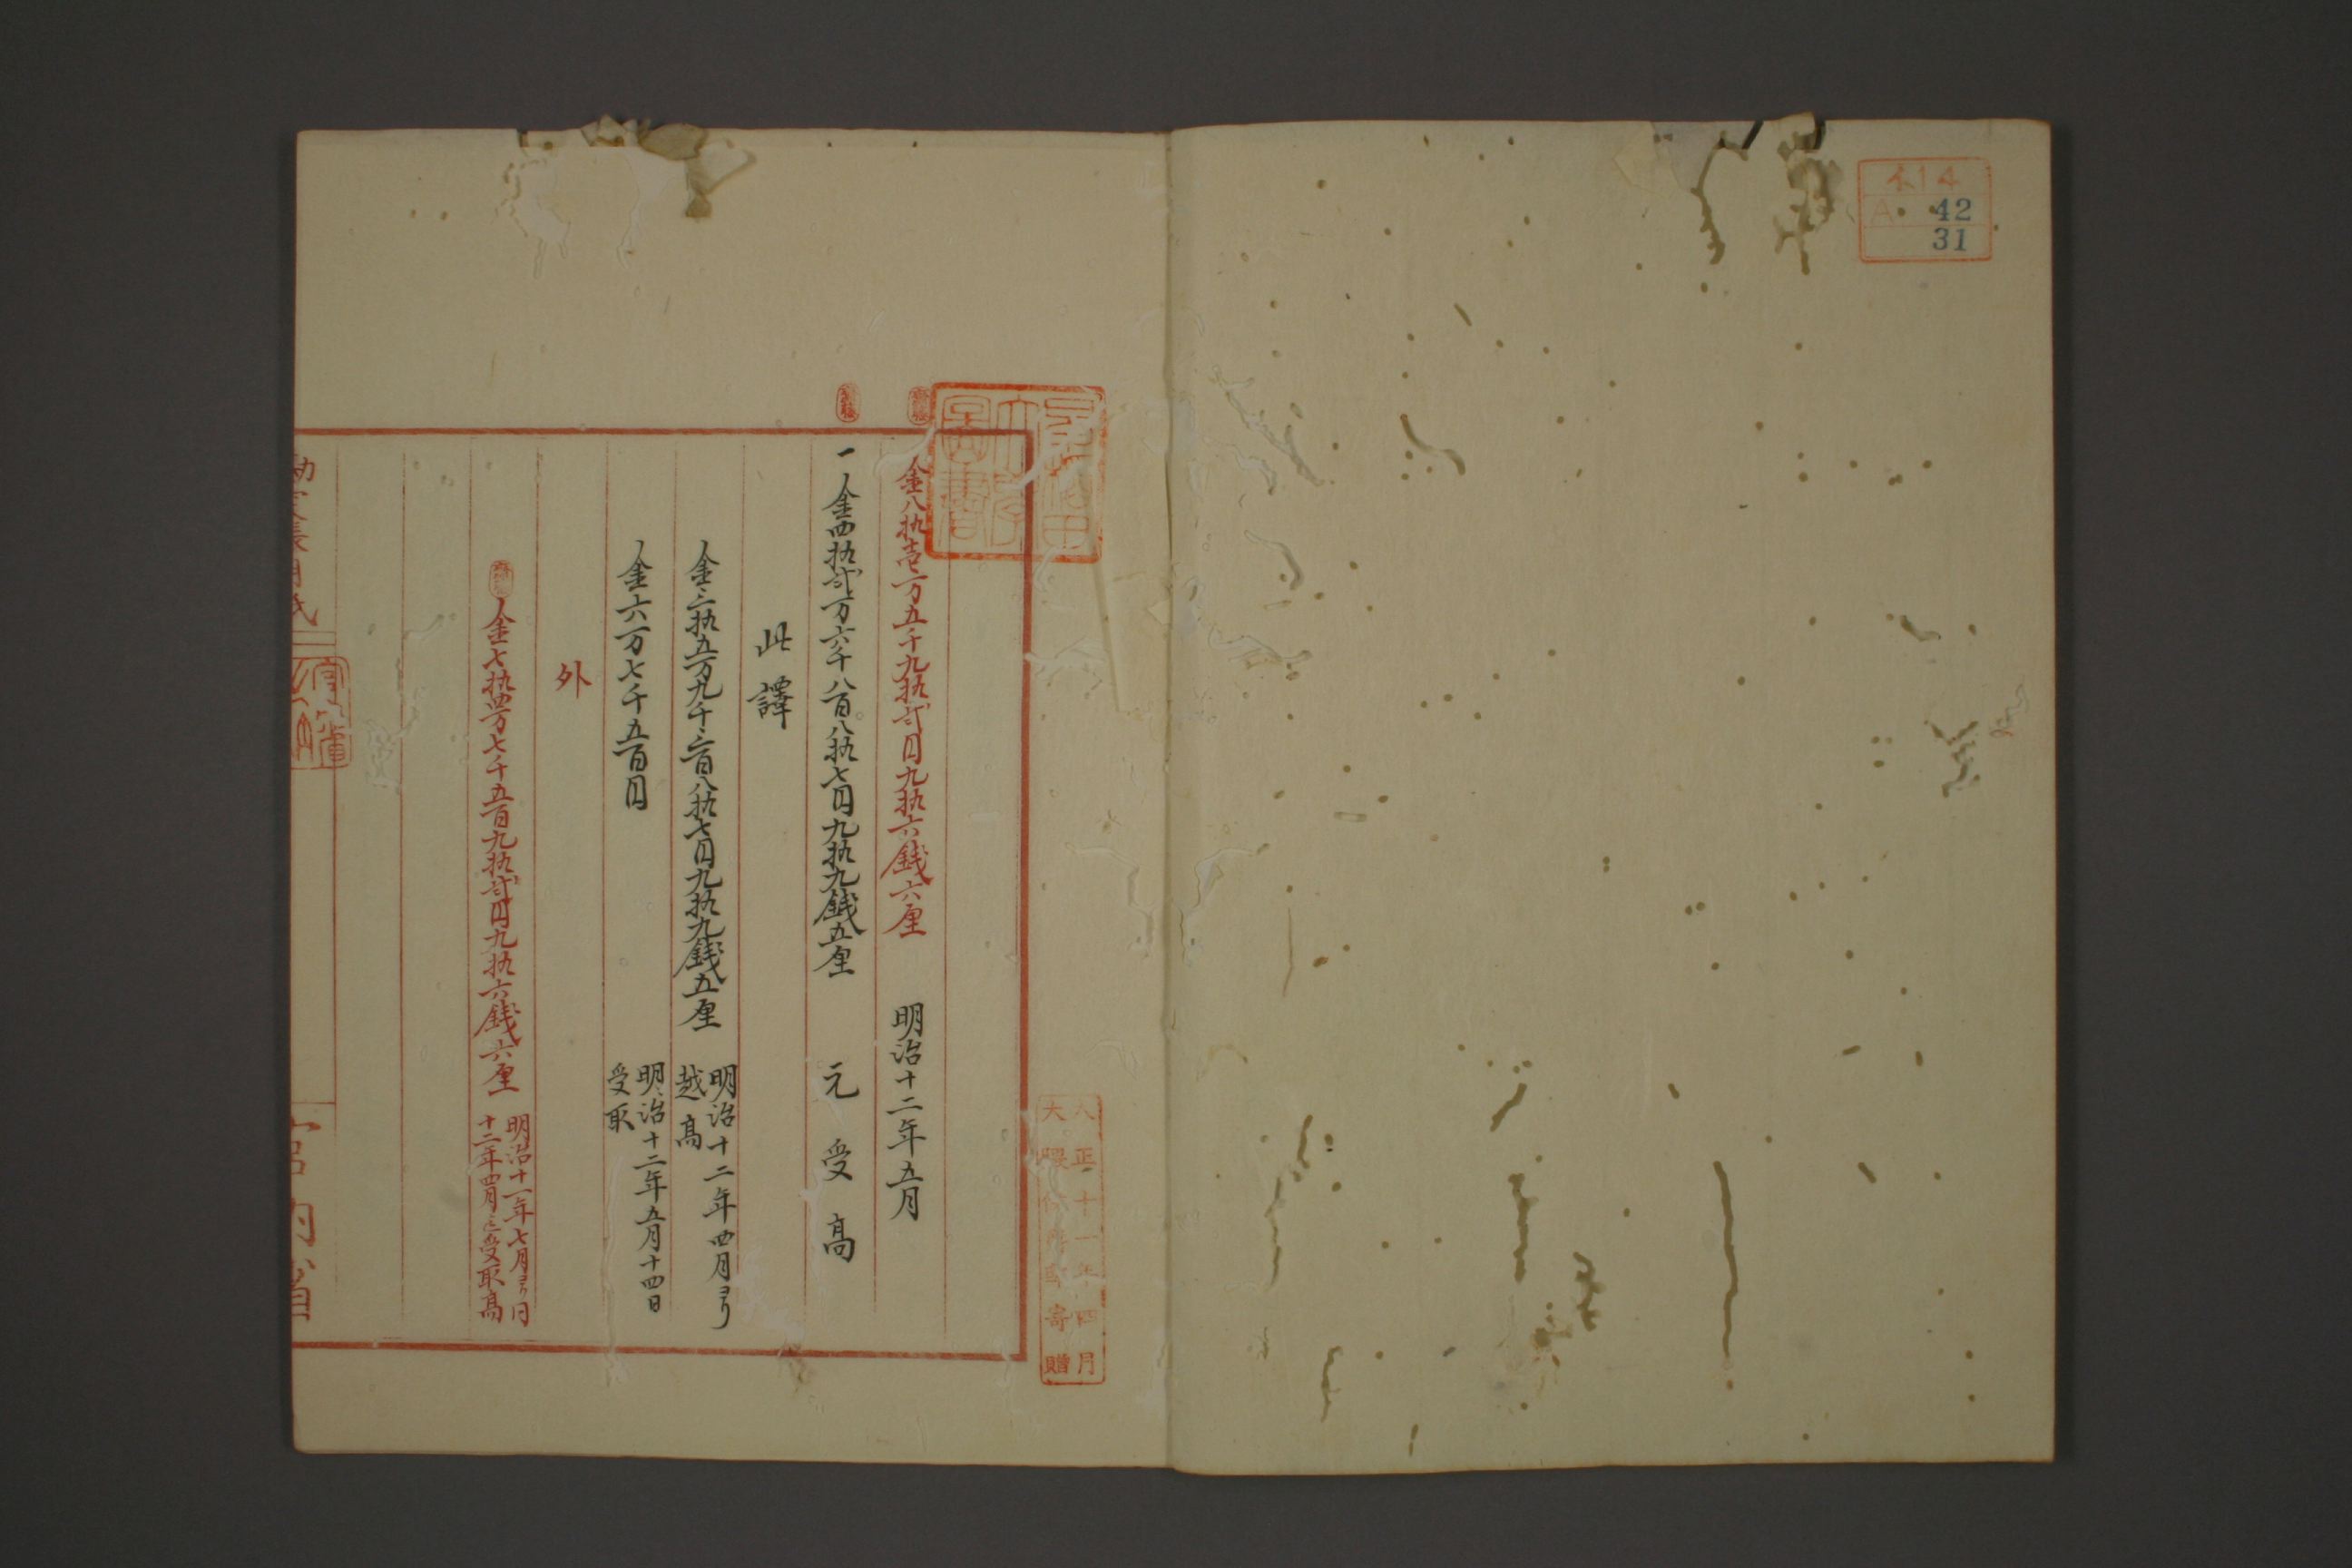 イ14
A 42
31
早稲田大学図書
大正十一年四月
大隈侯爵家寄贈
金八拾壱万五千九拾弐円九拾六銭六厘 明治十二年五月
一金四拾弐万六千八百八拾七円九拾九銭五厘 元受高
此譯
金三拾五万九千三百八拾七円九拾九銭五厘 明治十二年四月ヨリ
越高
金六万七千五百円 明治十二年五月十四日
受取
外
金七拾四万七千五百九拾弐円九拾六銭六厘 明治十一年七月ヨリ同
十二年四月迄受取高
宮内省